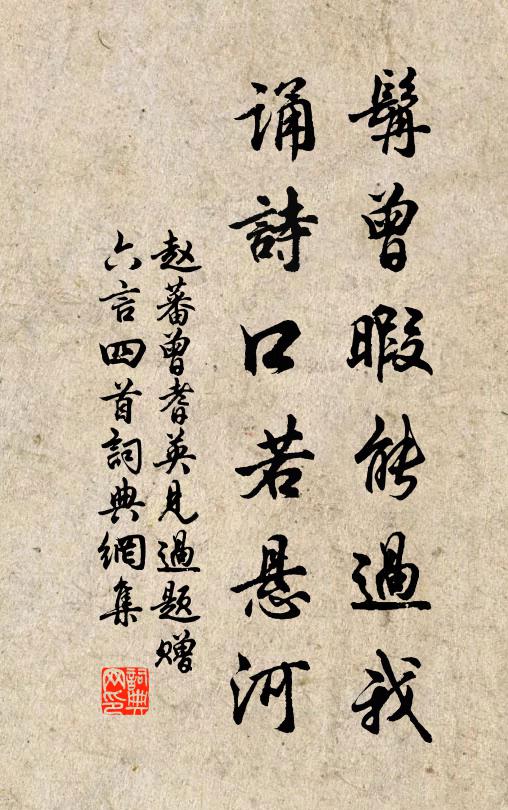 髯曾暇能過我
诵詩口若悬河
赵蕃曾耆英见過题赠
六言四首詞典網集
詞典网印